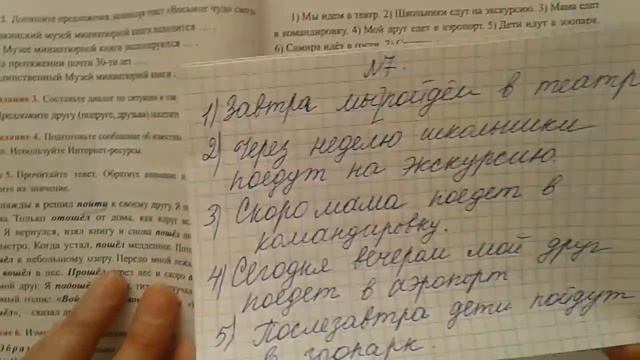 1. Дополните предложения, используя текст «Восьмое чудо света
бакинский музей миниатюрной книги находится ...
Музее миниатюрной книги экспонируются ...
а протяжении почти 30-ти лет ...
динственный Музей миниатюрной книги ...
1) Мы идем в театр. 2) Школьники едут на экскурсию. 3) Мама едет
в командировку. 4) Мой друг едет в аэропорт. 5) Дети идут в зоопарк.
6) Самира идёт в гости.
дание 3. Составьте диалог по ситуации и
редложите другу (подруге, друзьям) посетить
адание 4. Подготовьте сообщение об
а. Используйте Интернет-ресурсы.
5. Прочитайте текст. Обратите внимание
ите их значение.
нажды я решил пойти к своему другу. Я
ма. Только отошёл от дома, как вдруг
Я вернулся, взял книгу и снова пошёл
ыстро. Когда устал, пошёл медленнее.
ёл к небольшому озеру. Передо мной
вошёл в лес. Прошёл через лес и скоро
мой друг. Я подошёл
ый голос: «Вой
ёл», сказал
ние 6.
Образ
№7.
1) Завтра мы пойдём в театр
2) Через неделю школьники
поедут на экскурсию.
3) Скоро мама поедет в
командировку.
4) Сегодня вечером мой друг
поедет в аэропорт
5) Послезавтра дети пойдут
в зоопарк.